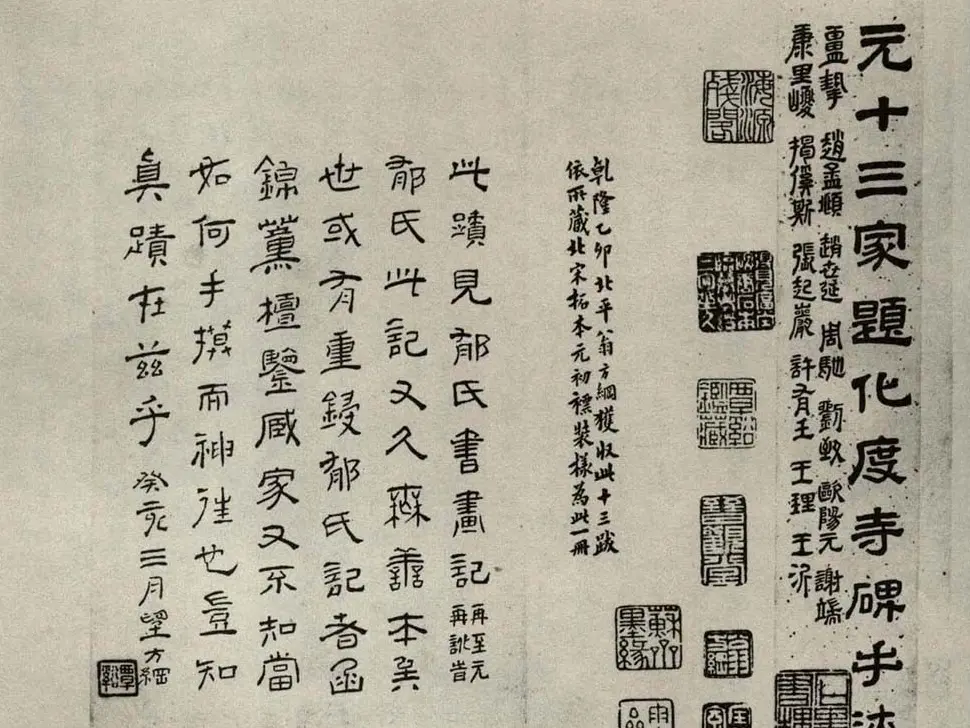 元十三家題化度寺碑手
盧摯 趙孟頫 趙世延 周馳 劉致 歐陽元 謝端
康里巎 揭傒斯 張起巖 許有壬 王理 王沂
海源殘閣
覃谿鑑藏
蘇齋墨緣
乾隆乙卯北平翁方綱獲收此十三跋
依所藏北宋拓本元初褾裝樣為此一冊
此蹟見郁氏書畫記 再至元
再訛昔
郁氏此記又久無善本矣
世或有重鋟郁氏記者函
錦薰檀鑒臧家又不知當
如何手摸而神往也豈知
真蹟在茲乎 癸亥三月望方綱
覃谿